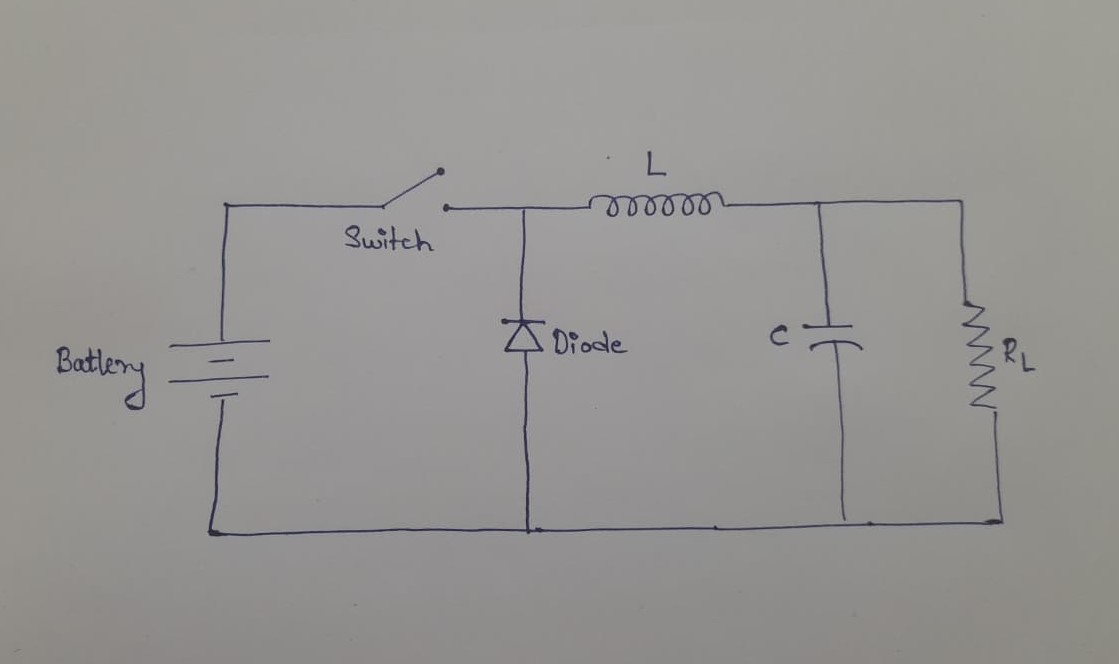 L
Switch
Battery
Diode
C
RL